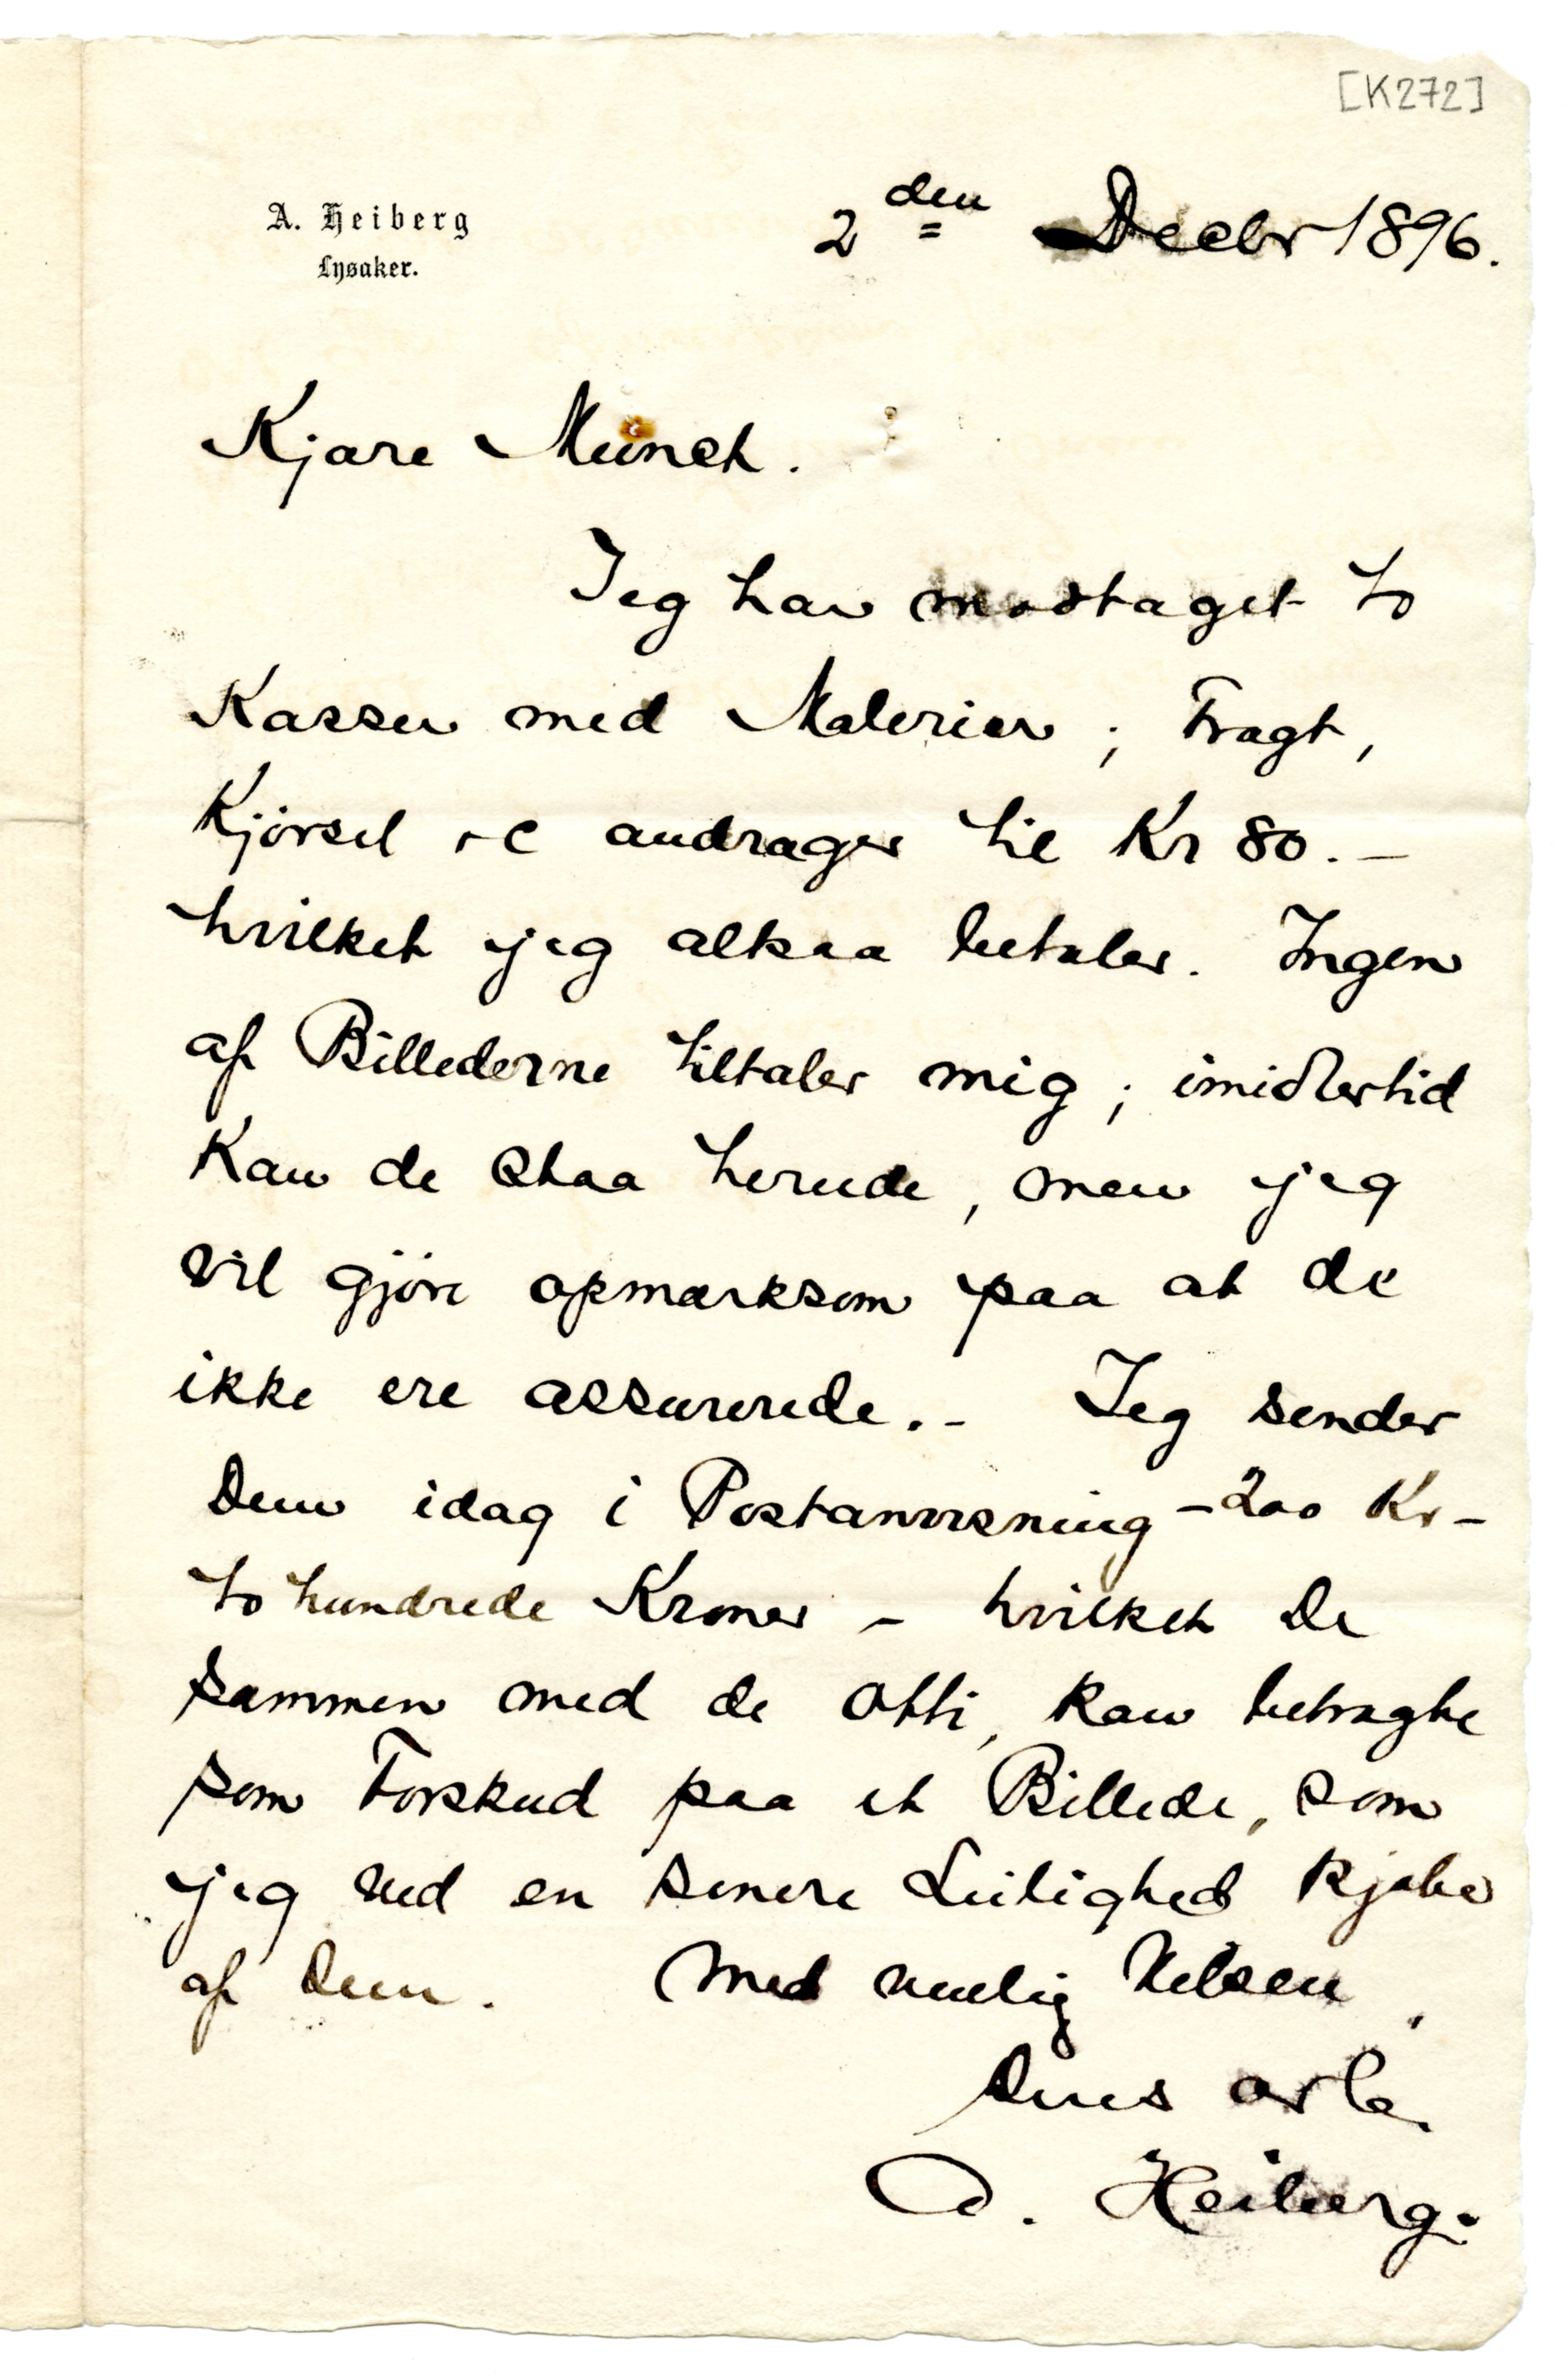 [K272]
A. Heiberg
Lysaker.
2den Decbr 1896.
Kjære Munch.
Jeg har modtaget to
Kasser med Malerier; Fragt,
Kjørsel &c andrager til Kr 80.-
hvilket jeg altsaa betaler. Ingen
af Billederne tiltaler mig; imidlertid
kan de staa herude, men jeg
vil gjøre opmærksom paa at de
ikke ere assurerede.- Jeg sender
Dem idag i Postanvisning - 200 Kr -
to hundrede Kroner - hvilket De
sammen med de otti, kan betragte
som Forskud paa et Billede, som
jeg ved en senere Leilighed kjøber
af Dem. Med venlig Hilsen,
Deres
A. Heiberg.